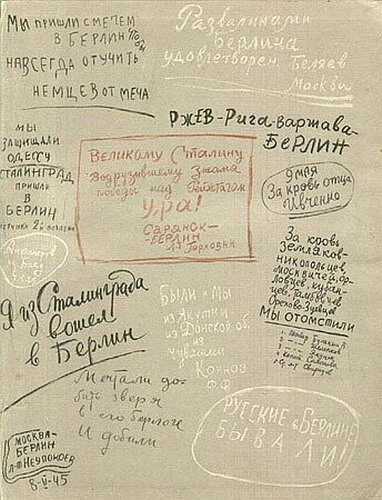 МЫ ПРИШЛИ С МЕЧЕМ
В БЕРЛИН
НАВСЕГДА ОТУЧИТЬ
НЕМЦЕВ ОТ МЕЧА
Развалинами
Берлина
удовлетворен. Беляев
Москва
РЖЕВ-Рига-Варшава-
БЕРЛИН
МЫ
ЗАЩИЩАЛИ
ОДЕССУ
СТАЛИНГРАД
ПРИШЛИ
В
БЕРЛИН
Великому Сталину
водрузившему знамя
победы над Рейхстагом
УРА!
САРАНСК-
БЕРЛИН
9 МАЯ
За кровь отца
Ивченко
За кровь
земляков-
никопольцев
москвичей, ор-
ловцев,
цев, тамбовцев
Орехово-Зуевцев
МЫ ОТОМСТИЛИ
Я из Сталинграда
вошел
в Берлин
БЫЛИ И МЫ
из Якутии
из Донской об.
из Чувашии
Коннов
ФФ
Мечтали до-
бить зверя
в его берлоге
И добили
РУССКИЕ в БЕРЛИНЕ
БЫВАЛИ!
МОСКВА-
БЕРЛИН
Л-т НЕУПОКОЕВ
8-V-45